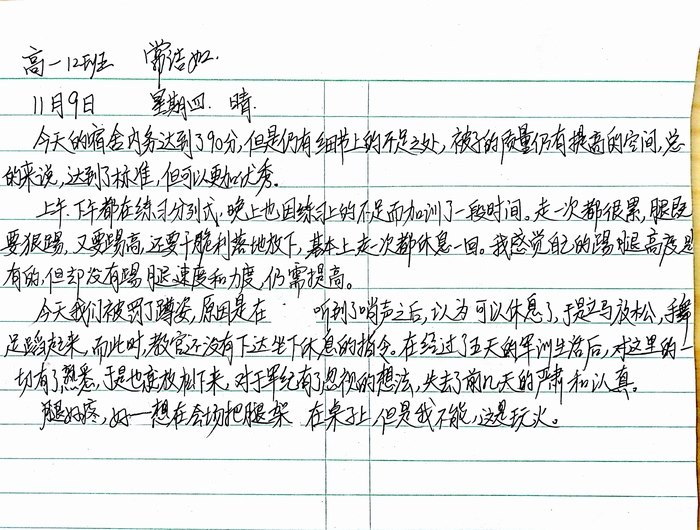 高一12班 常洁如.
11月9日 星期四. 晴.
今天的宿舍内务达到了90分,但是仍有细节上的不足之处,被子的质量仍有提高的空间,总
的来说,达到了标准,但可以更加优秀。
上午.下午都在练习分列式,晚上也因练习上的不足而加训了一段时间。走一次都很累,腿既
要狠踢,又要踢高,还要干脆利落地放下,基本上走一次都休息一回。我感觉自己的踢腿高度是
有的,但却没有踢腿速度和力度,仍需提高。
今天我们被罚了蹲姿,原因是在 听到了哨声之后,认为可以休息了,于是立马放松,手舞
足蹈起来,而此时,教官还没有下达坐下休息的指令。在经过了五天的军训生活后,对这里的一
切有了熟悉,于是也变放松下来,对于军纪有了忽视的想法,失去了前几天的严肃和认真。
腿好疼,好一想在会场把腿架 在桌子上,但是我不能,这是玩火。